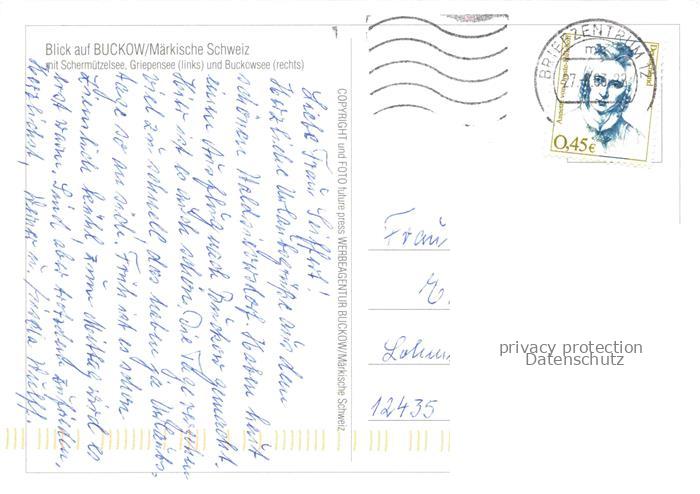 Blick auf BUCKOW/Märkische Schweiz
mit Schermützelsee, Griepensee (links) und Buckowsee (rechts)
Liebe Frau Seiffert!
Herzliche Urlaubsgrüße aus dem
schönen Waldsieversdorf. Haben heut
einen Ausflug nach Buckow gemacht.
Hier ist es auch schön. Die Tage vergehen
viel zu schnell das haben ja Urlaubs-
tage so an sich. Früh ist es schon
ziemlich kühl zum Mittag wird es
erst warm. Sind aber trotzdem zufrieden.
Herzlichst, Werner u. Frieda Wulff.
COPYRIGHT und FOTO future press WERBEAGENTUR BUCKOW/Märkische Schweiz
BRIEFZENTRUM
0,45€
Frau
E.
12435
privacy protection
Datenschutz